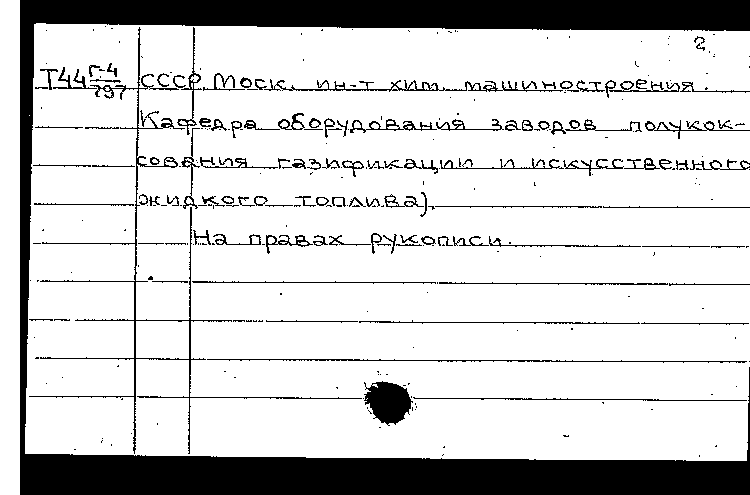 2
Т44 Г-4/797 СССР. Моск. ин-т хим. машиностроения.
Кафедра оборудования заводов полукок-
сования газификации и искусственного
жидкого топлива).
На правах рукописи.